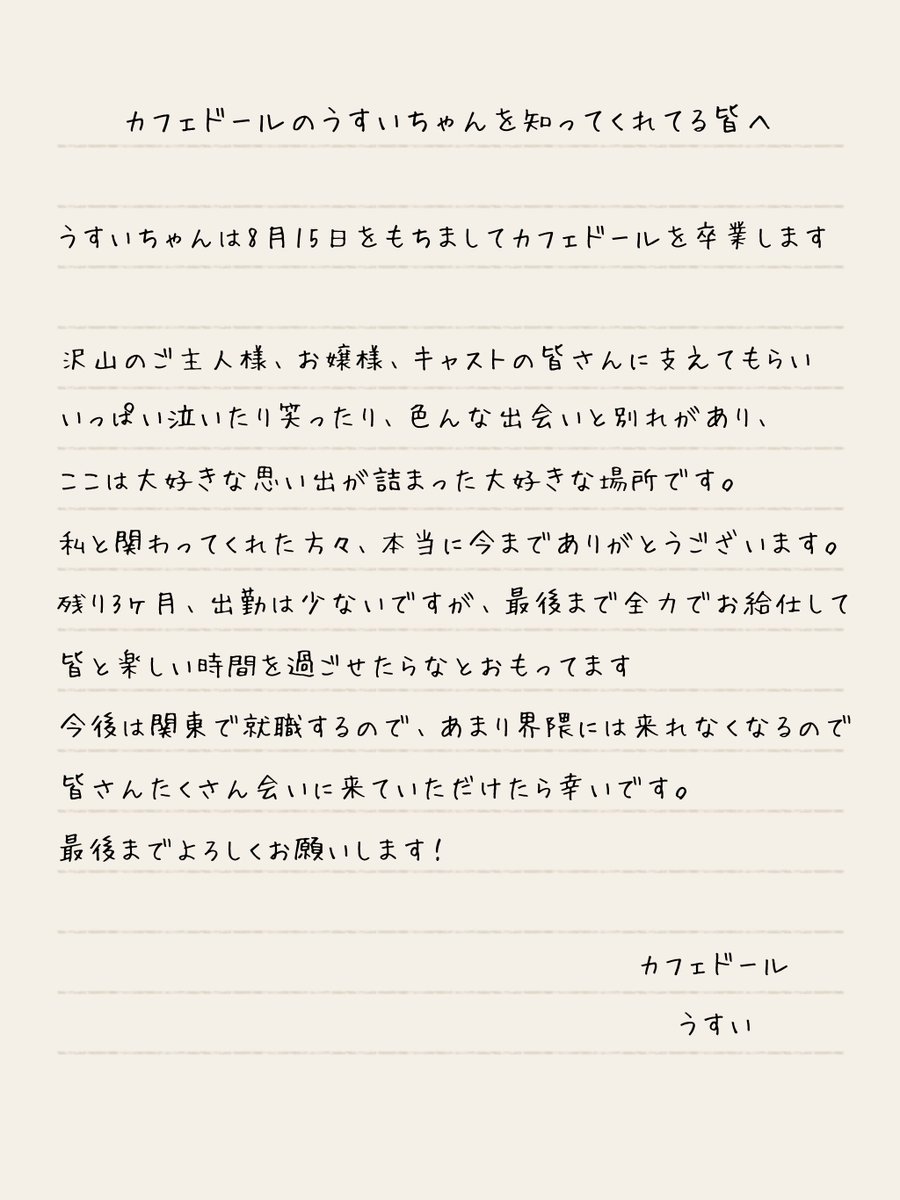 カフェドールのうすいちゃんを知ってくれてる皆へ
うすいちゃんは8月15日をもちましてカフェドールを卒業します
沢山のご主人様、お嬢様、キャストの皆さんに支えてもらい
いっぱい泣いたり笑ったり、色んな出会いと別れがあり、
ここは大好きな思い出が詰まった大好きな場所です。
私と関わってくれた方々、本当に今までありがとうございます。
残り3ヶ月、出勤は少ないですが、最後まで全力でお給仕して
皆と楽しい時間を過ごせたらなとおもってます
今後は関東で就職するので、あまり界隈には来れなくなるので
皆さんたくさん会いに来ていただけたら幸いです。
最後までよろしくお願いします!
カフェドール
うすい